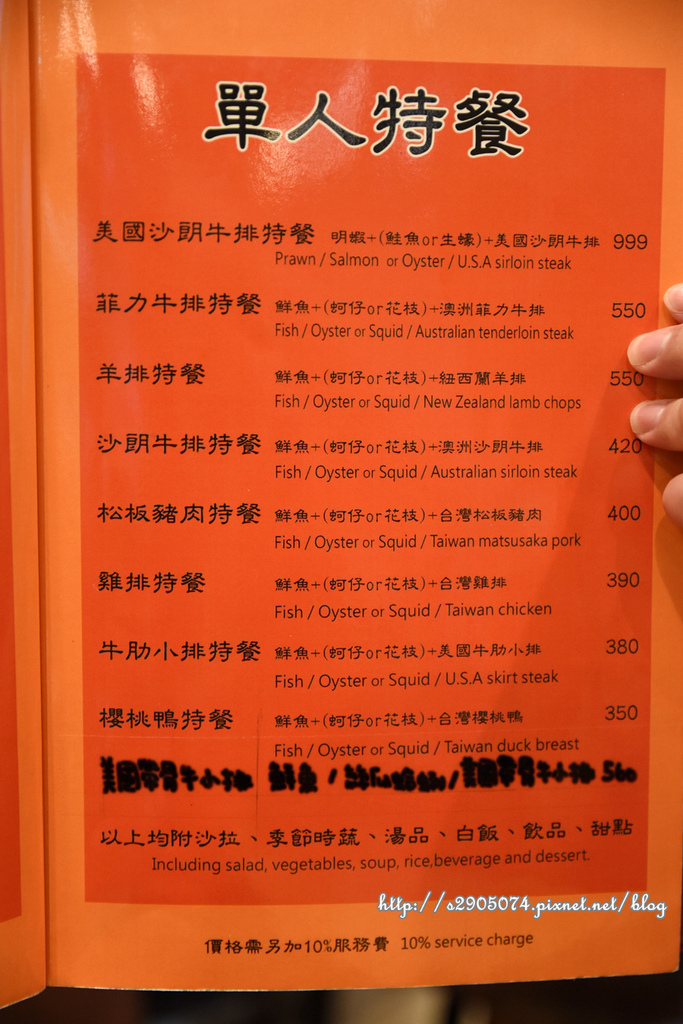 單人特餐
美國沙朗牛排特餐 明蝦+(鮭魚or生蠔)+美國沙朗牛排 999
Prawn / Salmon or Oyster / U.S.A sirloin steak
菲力牛排特餐 鮮魚+(蚵仔or花枝)+澳洲菲力牛排 550
Fish / Oyster or Squid / Australian tenderloin steak
羊排特餐 鮮魚+(蚵仔or花枝)+紐西蘭羊排 550
Fish / Oyster or Squid / New Zealand lamb chops
沙朗牛排特餐 鮮魚+(蚵仔or花枝)+澳洲沙朗牛排 420
Fish / Oyster or Squid / Australian sirloin steak
松板豬肉特餐 鮮魚+(蚵仔or花枝)+台灣松板豬肉 400
Fish / Oyster or Squid / Taiwan matsusaka pork
雞排特餐 鮮魚+(蚵仔or花枝)+台灣雞排 390
Fish / Oyster or Squid / Taiwan chicken
牛肋小排特餐 鮮魚+(蚵仔or花枝)+美國牛肋小排 380
Fish / Oyster or Squid / U.S.A skirt steak
櫻桃鴨特餐 鮮魚+(蚵仔or花枝)+台灣櫻桃鴨 350
Fish / Oyster or Squid / Taiwan duck breast
美國帶骨牛小排 鮮魚 / / 美國帶骨牛小排 560
以上均附沙拉、季節時蔬、湯品、白飯、飲品、甜點
Including salad, vegetables, soup, rice,beverage and dessert.
http://s2905074.pixnet.net/blog
價格需另加10%服務費 10% service charge